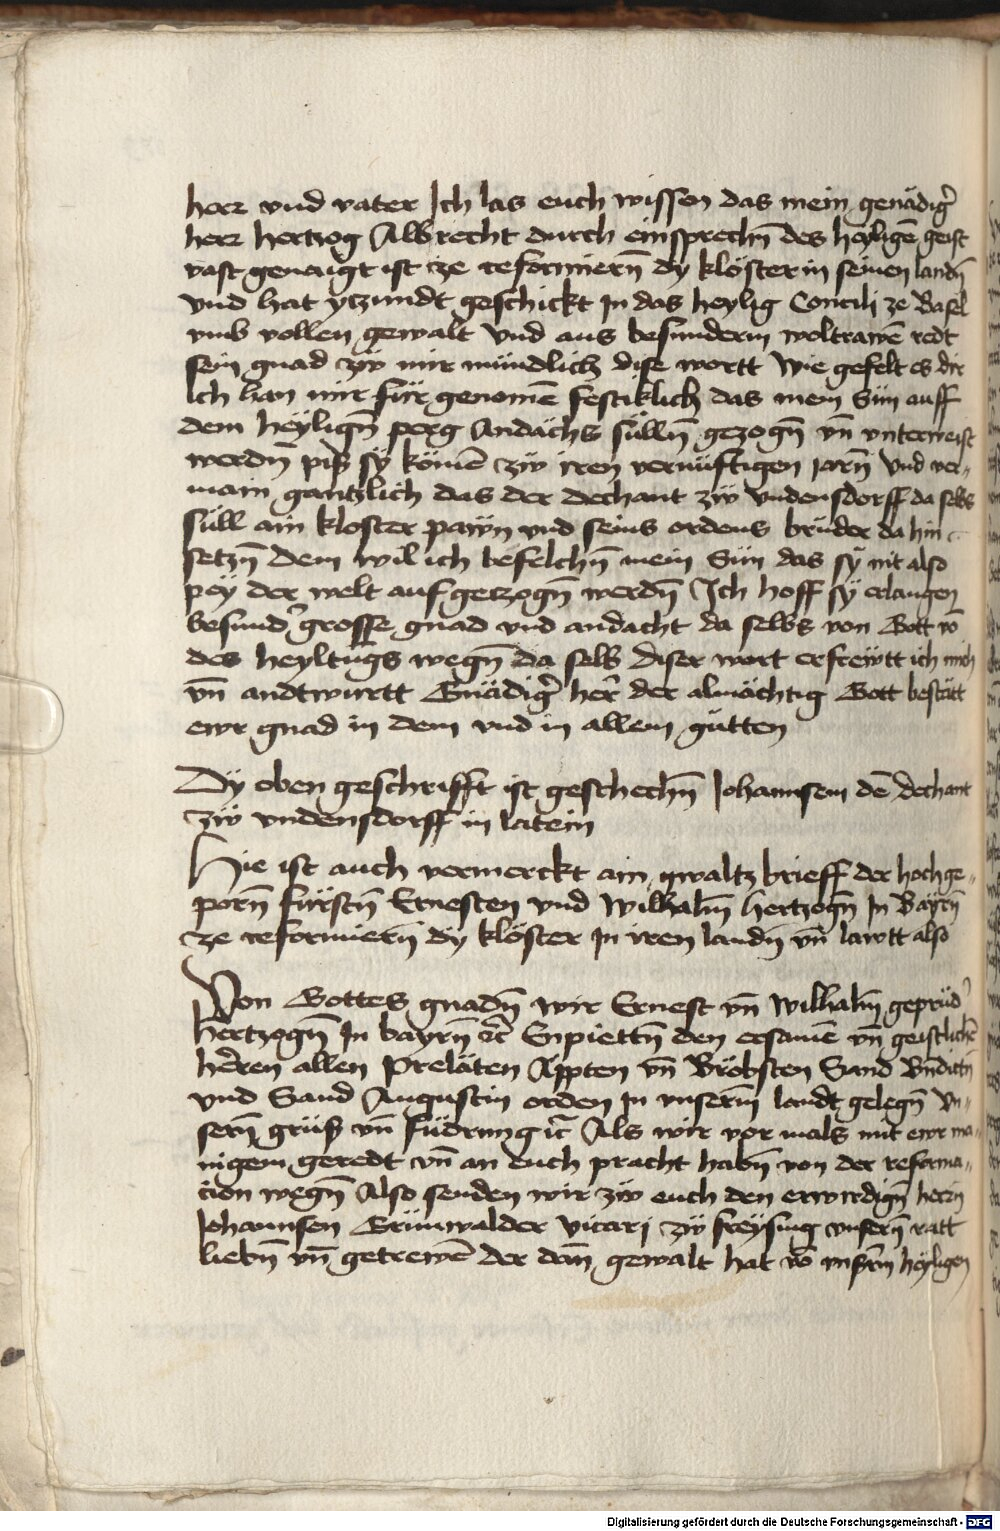 herr vnd vater Ich las euch wissen das mein genädig̃
herr hertzog Albrecht durch einsprechn̄ des heyligē geist
vast genaigt ist ze reformiern̄ dy klöster in seinen landn̄
vnd hat ytzundt geschickt In das heylig Concili ze Basel
vmb vollen gewalt Vnd aus besunderm woltrawē redt
sein gnad zẅ mir mündlich dise wortt Wie gefelt es dir
Ich han mir für genomē festiklich das mein Sün auff
dem heÿlign̄ perg Andächs sülln̄ gezogn̄ vn̄ vnterweist
werdn̄ piß sy kömē zẅ iren vernüftigen Jarn̄ Vnd ver-
main gantzlich das der dechant zẅ Vndensdorff da selbs
süll ain kloster paẅn vnd seins ordens brüder da hin
setzn̄ dem wil ich befelchn̄ mein Sün das sÿ nit also
peÿ der welt auf getzogn̄ werdn̄ Ich hoff sÿ erlangen
besund̾ grosse gnad vnd andacht da selbs von Gott vō
des heyltu̇gs wegn̄ da selb diser wort erfreẅtt ich mich
vn̄ andtwurtt Gnädig̃ her̄ der almächtig Gott bestätt
ewr gnad in dem vnd in allem gütten
Dÿ oben geschrifft ist geschechn̄ Johannsem dē dechant
zẅ vndensdorff in latein
Hie ist auch vermerckt ain gwaltz brieff der hochge-
porn̄ fürstn̄ Ernesten vnd Wilhalm̄ hertzogn̄ In Bayrn̄
ze reformiern̄ dy klöster In iren landn̄ vn̄ lawtt also
Von Gottes gnadn̄ wir Ernest vn̄ Wilhalm̄ geprüd̾
hertzogn̄ In bayrn̄ ꝛc̄ Enpiettn̄ den ersamē vn̄ geistlichē
herren allen Preläten Äppten vn̄ Bröbsten Sand Bndictn̄
vnd Sand Augustin orden In vnserm̄ landt gelegn̄ Vn-
sern̄ grüß vn̄ füdrung ꝛc̄ Als wir vor mals mit ewr ma-
nigem geredt vn̄ an euch pracht habn̄ von der reforma-
cion wegn̄ Also senden wir zẅ euch den erwirdign̄ herrn̄
Johannsen Grünwalder Vicari zẅ freÿsing vnsern̄ ratt
liebn̄ vn̄ getrewē der dan̄ gewalt hat vō vnserm̄ heÿligen
Digitalisierung gefördert durch die Deutsche Forschungsgemeinschaft - DFG